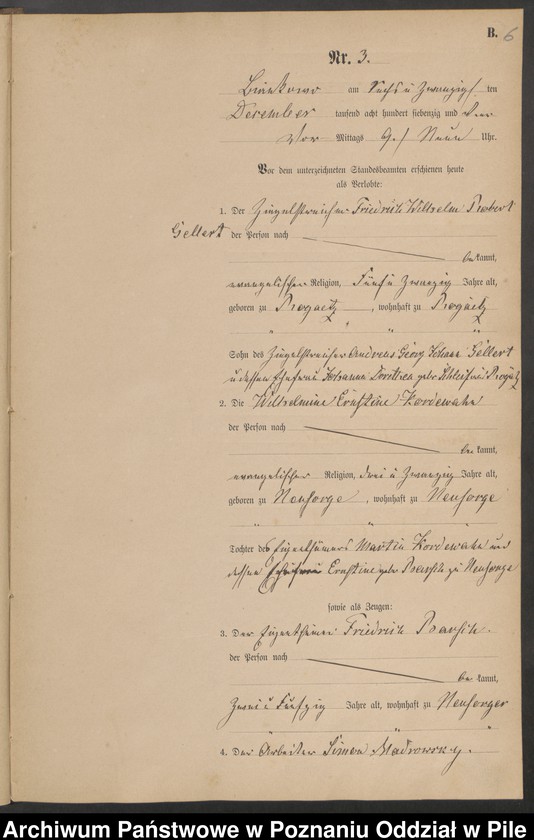 B. 6
Nr. 3.
am Sechs u Zwanzigs ten
December tausend acht hundert siebenzig und vier
Vor Mittags 9 / Neun Uhr.
Vor dem unterzeichneten Standesbeamten erschienen heute
als Verlobte:
1. Der Ziegelstreicher Friedrich Wilhelm Robert
Gellert der Person nach
be kannt,
evangelischer Religion, Fünf u Zwanzig Jahre alt,
geboren zu Rogaetz, wohnhaft zu Rogaetz
" " "
Sohn des Ziegelstreicher Andreas Georg Gellert
u dessen Ehefrau Johanna Dorothea gebr
2. Die Wilhelmine Ernstine Kordewahn
der Person nach
be kannt,
evangelischer Religion, drei u Zwanzig Jahre alt,
geboren zu Neusorge, wohnhaft zu Neusorge
" " "
Tochter des Eigenthümers Martin Kordewahn und
dessen Ernstine gebr zu Neusorge
sowie als Zeugen:
3. Der Eigenthümer Friedrich
der Person nach
be kannt,
Zwei u Jahre alt, wohnhaft zu Neusorge
" " "
4. Der Arbeiter Simon
Archiwum Państwowe w Poznaniu Oddział w Pile